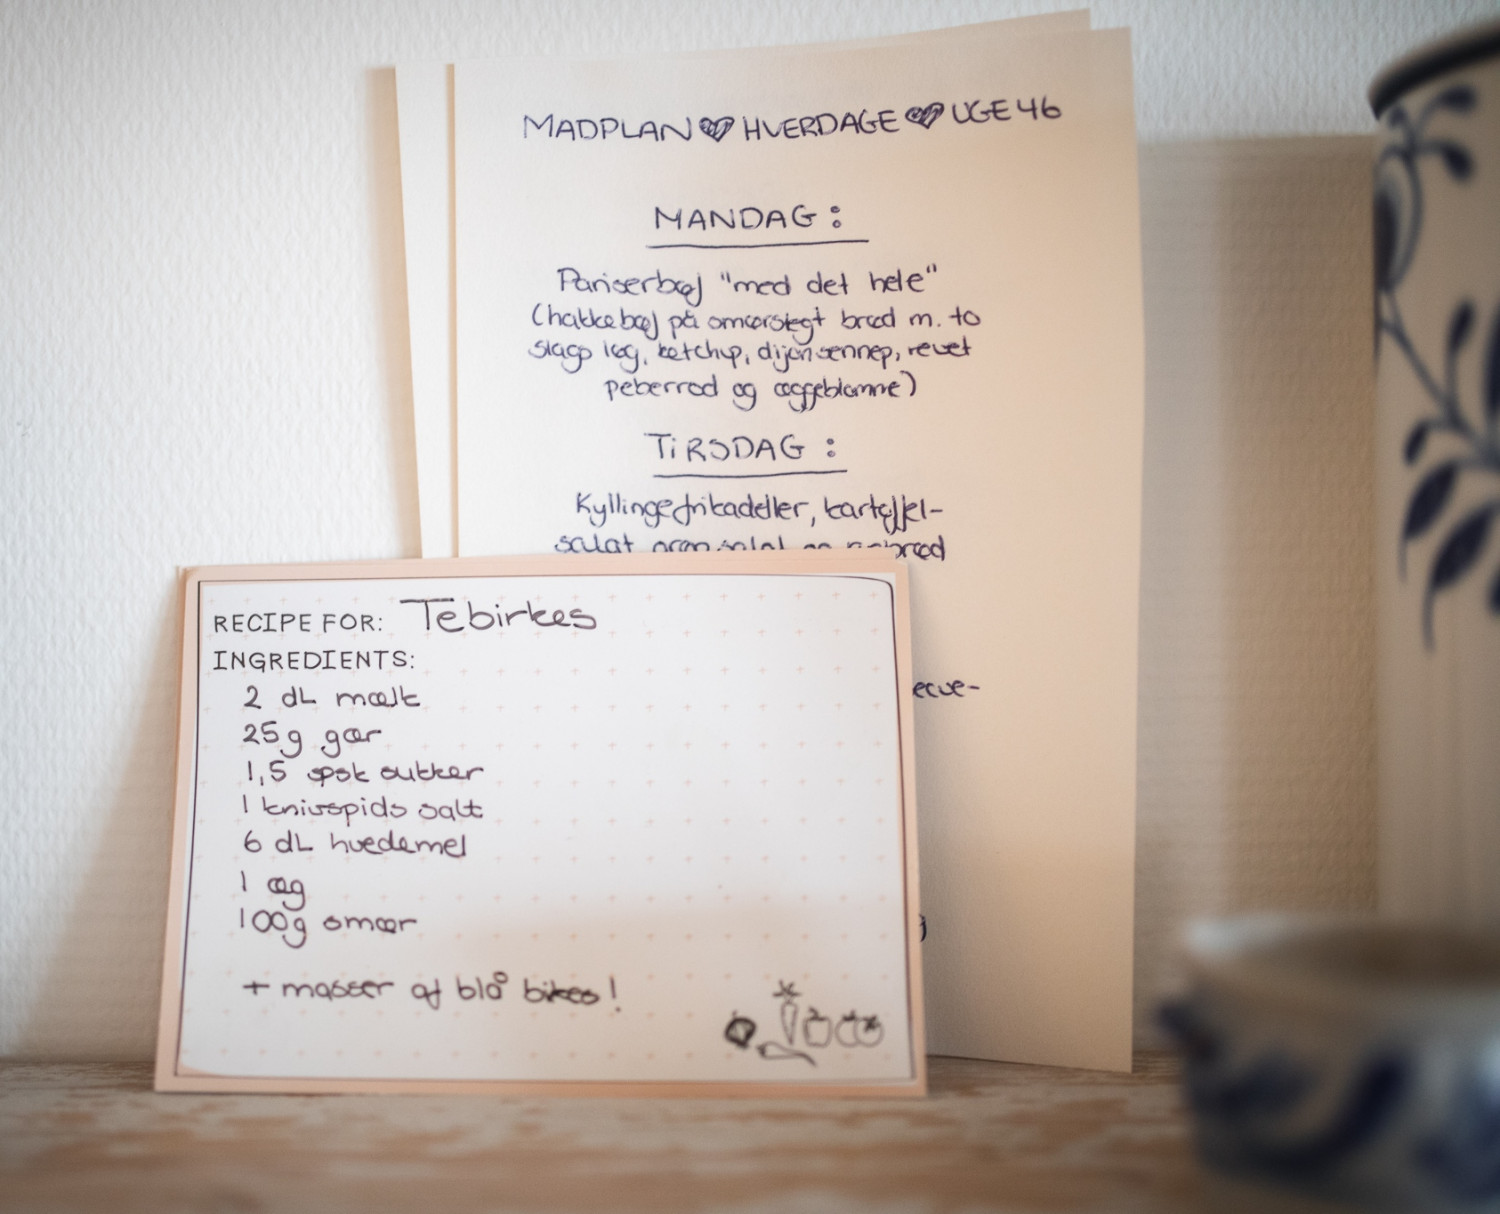 MADPLAN ♥ HVERDAGE ♥ UGE 46
MANDAG:
Pariserbøf "med det hele"
(hakkebøf på smørstegt brød m. to
slags løg, ketchup, dijonsennep, revet
peberrod og æggeblomme)
TiRSDAG:
Kyllingefrikadeller, kartoffel-
salat
ecue-
RECIPE FOR: Tebirkes
INGREDIENTS:
2 dL mælk
25g gær
1,5 spsk sukker
1 knivspids salt
6 dL hvedemel
1 æg
100g smør
+ masser af blå bikes!